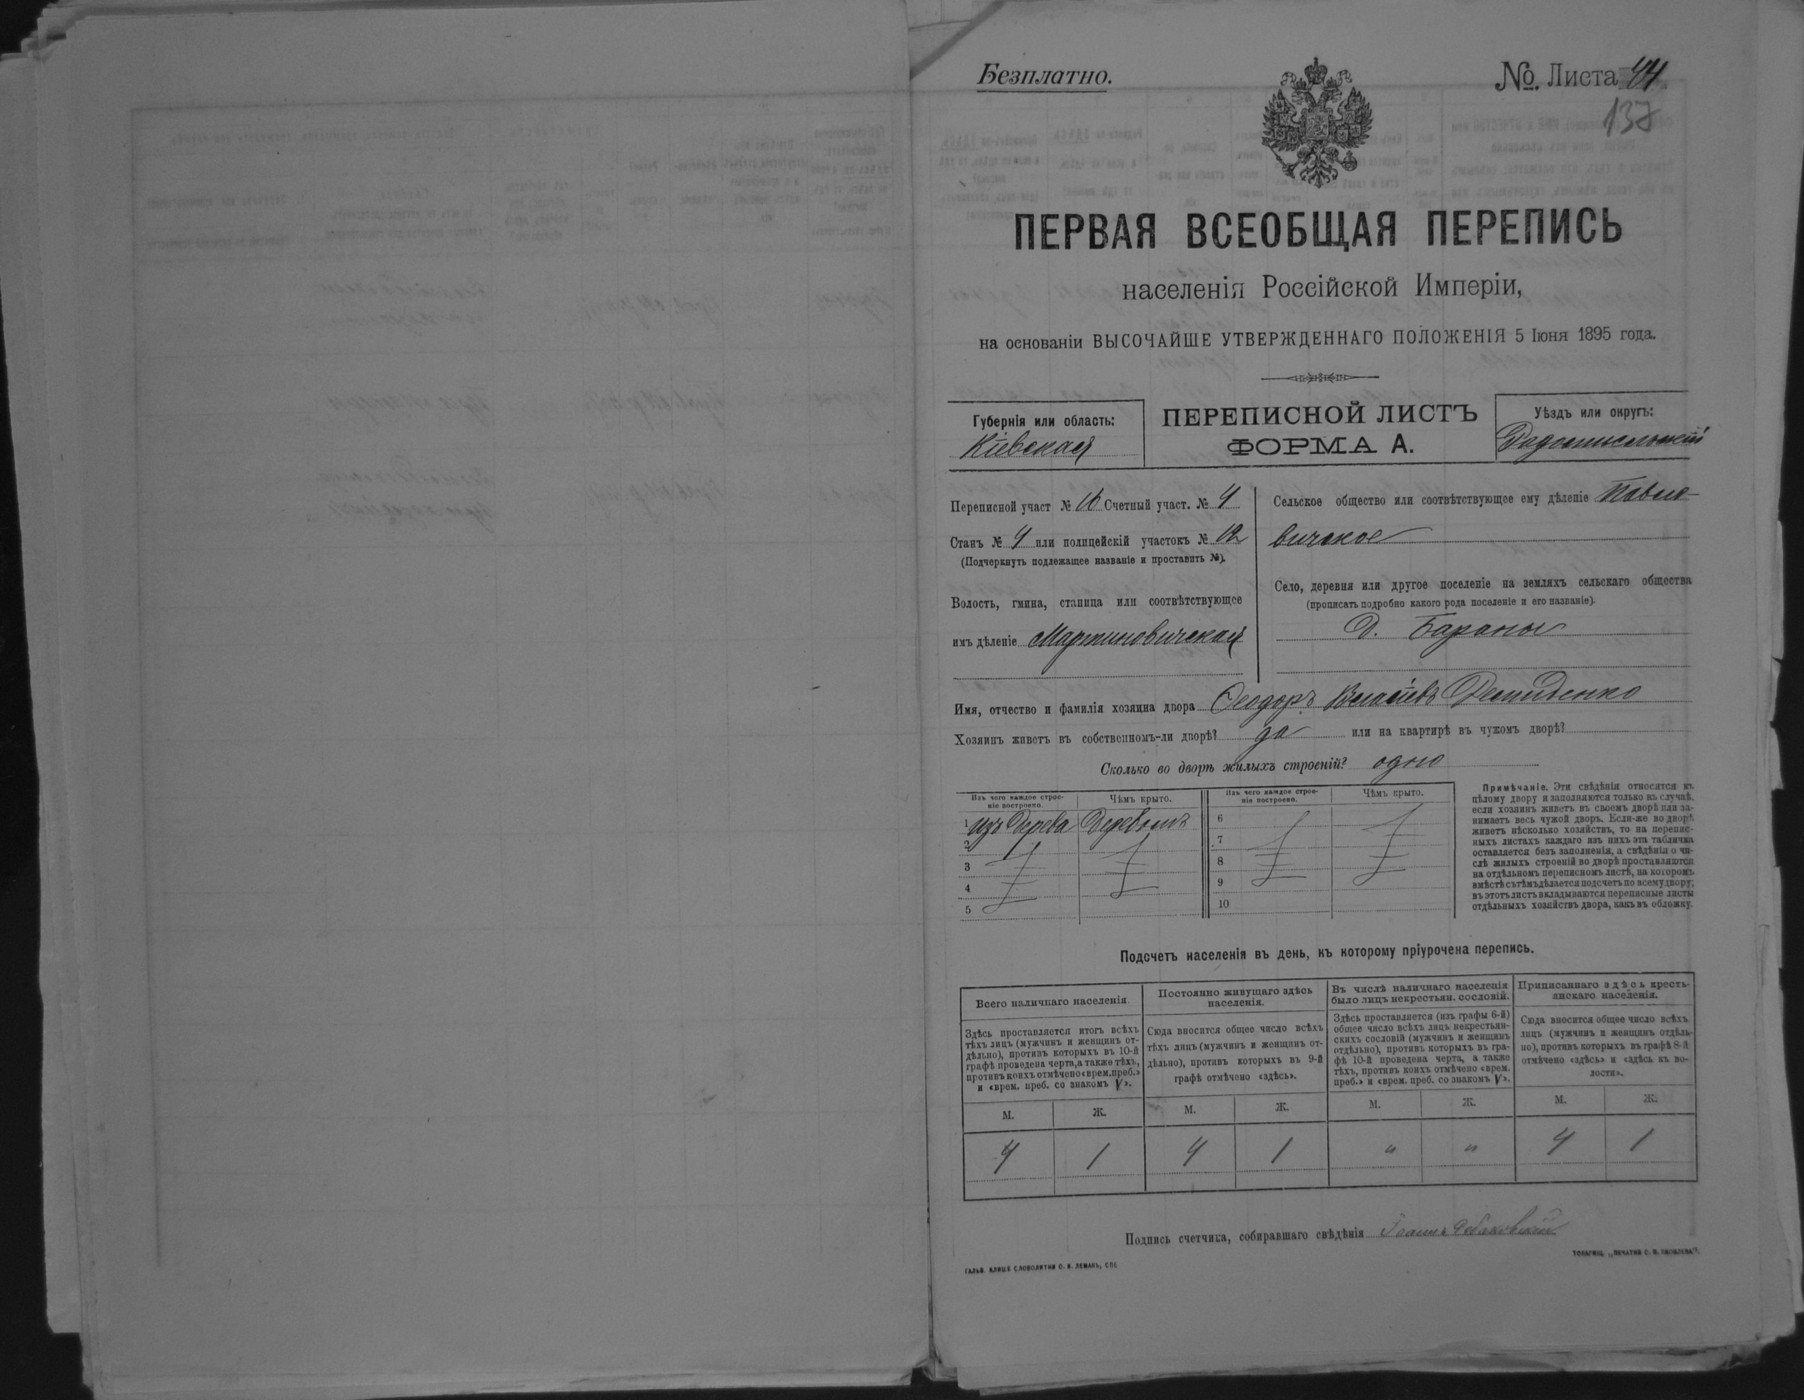 Безплатно.
№ Листа 44
137
ПЕРВАЯ ВСЕОБЩАЯ ПЕРЕПИСЬ
населенія Россійской Имперіи,
на основаніи ВЫСОЧАЙШЕ УТВЕРЖДЕННАГО ПОЛОЖЕНІЯ 5 Іюня 1895 года.
Губернія или область:
Кіевская
ПЕРЕПИСНОЙ ЛИСТЪ
ФОРМА А.
Уѣздъ или округъ:
Радомысльскій
Переписной участ № Счетный участ. № 4
Станъ № 4 или полицейскій участокъ № 12
(Подчеркнуть подлежащее названіе и проставить №).
Волость, гмина, станица или соотвѣтствующее
имъ дѣленіе Мартиновичская
Сельское общество или соотвѣтствующее ему дѣленіе Павло-
вичское
Село, деревня или другое поселеніе на земляхъ сельскаго общества
(прописать подробно какого рода поселеніе и его названіе).
Д. Бараны
Имя, отчество и фамилія хозяина двора Ѳеодоръ Власіевъ Демиденко
Хозяинъ живетъ въ собственномъ-ли дворѣ? да или на квартирѣ въ чужомъ дворѣ?
Сколько во дворѣ жилыхъ строеній? одно
Изъ чего каждое строе-
ніе построено.
Чѣмъ крыто.
Изъ чего каждое строе-
ніе построено.
Чѣмъ крыто.
1 изъ дерева Деревомъ
2
3
4
5
6
7
8
9
10
Примѣчаніе. Эти свѣдѣнія относятся къ
цѣлому двору и заполняются только въ случаѣ,
если хозяинъ живетъ въ своемъ дворѣ или за-
нимаетъ весь чужой дворъ. Если-же во дворѣ
живетъ нѣсколько хозяйствъ, то на перепис-
ныхъ листахъ каждаго изъ нихъ эта табличка
оставляется безъ заполненія, а свѣдѣнія о чи-
слѣ жилыхъ строеній во дворѣ проставляются
на отдѣльномъ переписномъ листѣ, на которомъ
вмѣстѣ съ тѣмъ дѣлается подсчетъ по всему двору;
въ этотъ листъ вкладываются переписные листы
отдѣльныхъ хозяйствъ двора, какъ въ обложку.
Подсчетъ населенія въ день, къ которому пріурочена перепись.
Всего наличнаго населенія.
Здѣсь проставляется итогъ всѣхъ
тѣхъ лицъ (мужчинъ и женщинъ от-
дѣльно), противъ которыхъ въ 10-й
графѣ проведена черта, а также тѣхъ,
противъ коихъ отмѣчено «врем. преб.»
и «врем. преб. со знакомъ V».
Постоянно живущаго здѣсь
населенія.
Сюда вносится общее число всѣхъ
тѣхъ лицъ (мужчинъ и женщинъ от-
дѣльно), противъ которыхъ въ 9-й
графѣ отмѣчено «здѣсь».
Въ числѣ наличнаго населенія
было лицъ некрестьян. сословій.
Здѣсь проставляется (изъ графы 6-й)
общее число всѣхъ лицъ некрестьян-
скихъ сословій (мужчинъ и женщинъ
отдѣльно), противъ которыхъ въ гра-
фѣ 10-й проведена черта, а также
тѣхъ, противъ коихъ отмѣчено «врем.
преб.» и «врем. преб. со знакомъ V».
Приписаннаго здѣсь кресть-
янскаго населенія.
Сюда вносится общее число всѣхъ
лицъ (мужчинъ и женщинъ отдѣль-
но), противъ которыхъ въ графѣ 8-й
отмѣчено «здѣсь» и «здѣсь въ во-
лости».
М. Ж. М. Ж. М. Ж. М. Ж.
4 1 4 1 " " 4 1
Подпись счетчика, собиравшаго свѣдѣнія Іоаннъ
ГАЛЬВ. КЛИШЕ СЛОВОЛИТНИ О. И. ЛЕМАНЪ, СПБ.
ТОВАРИЩ. „ПЕЧАТНЯ С. П. ЯКОВЛЕВА".